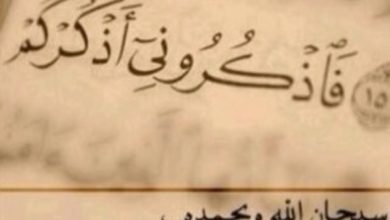 فَاذْكُرُونِي أَذْكُرْكُمْ
سبحان الله وبحمده